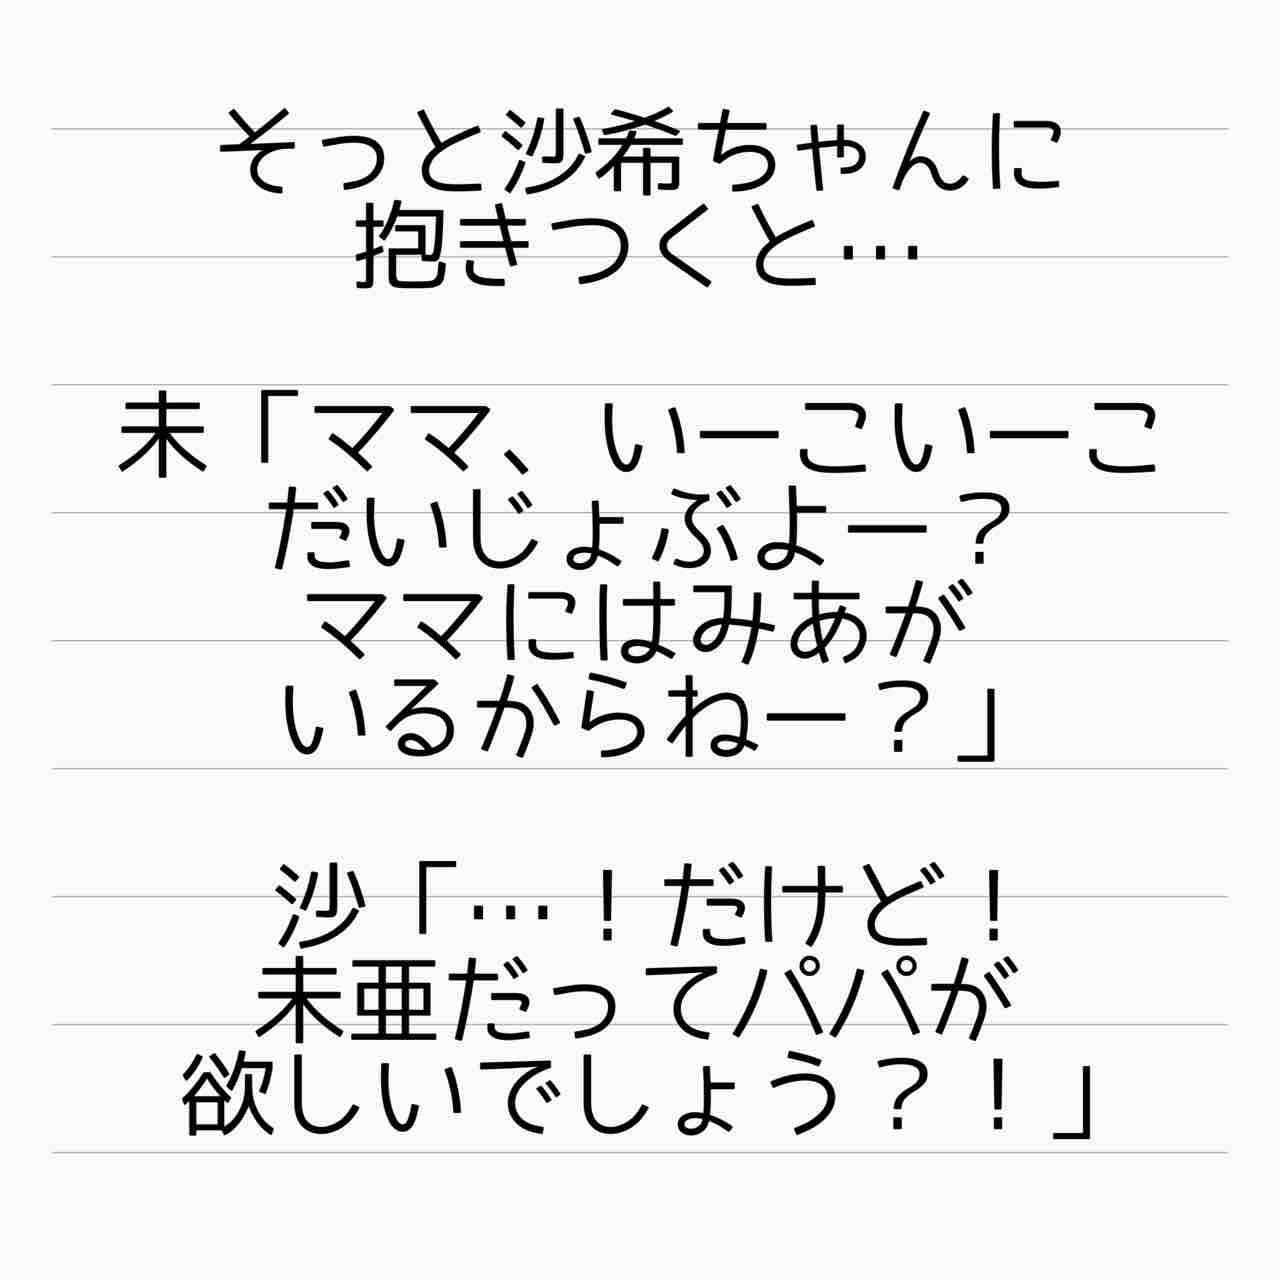 そっと沙希ちゃんに
抱きつくと…
未「ママ、いーこいーこ
だいじょぶよー？
ママにはみあが
いるからねー？」
沙「…！だけど！
未亜だってパパが
欲しいでしょう？！」